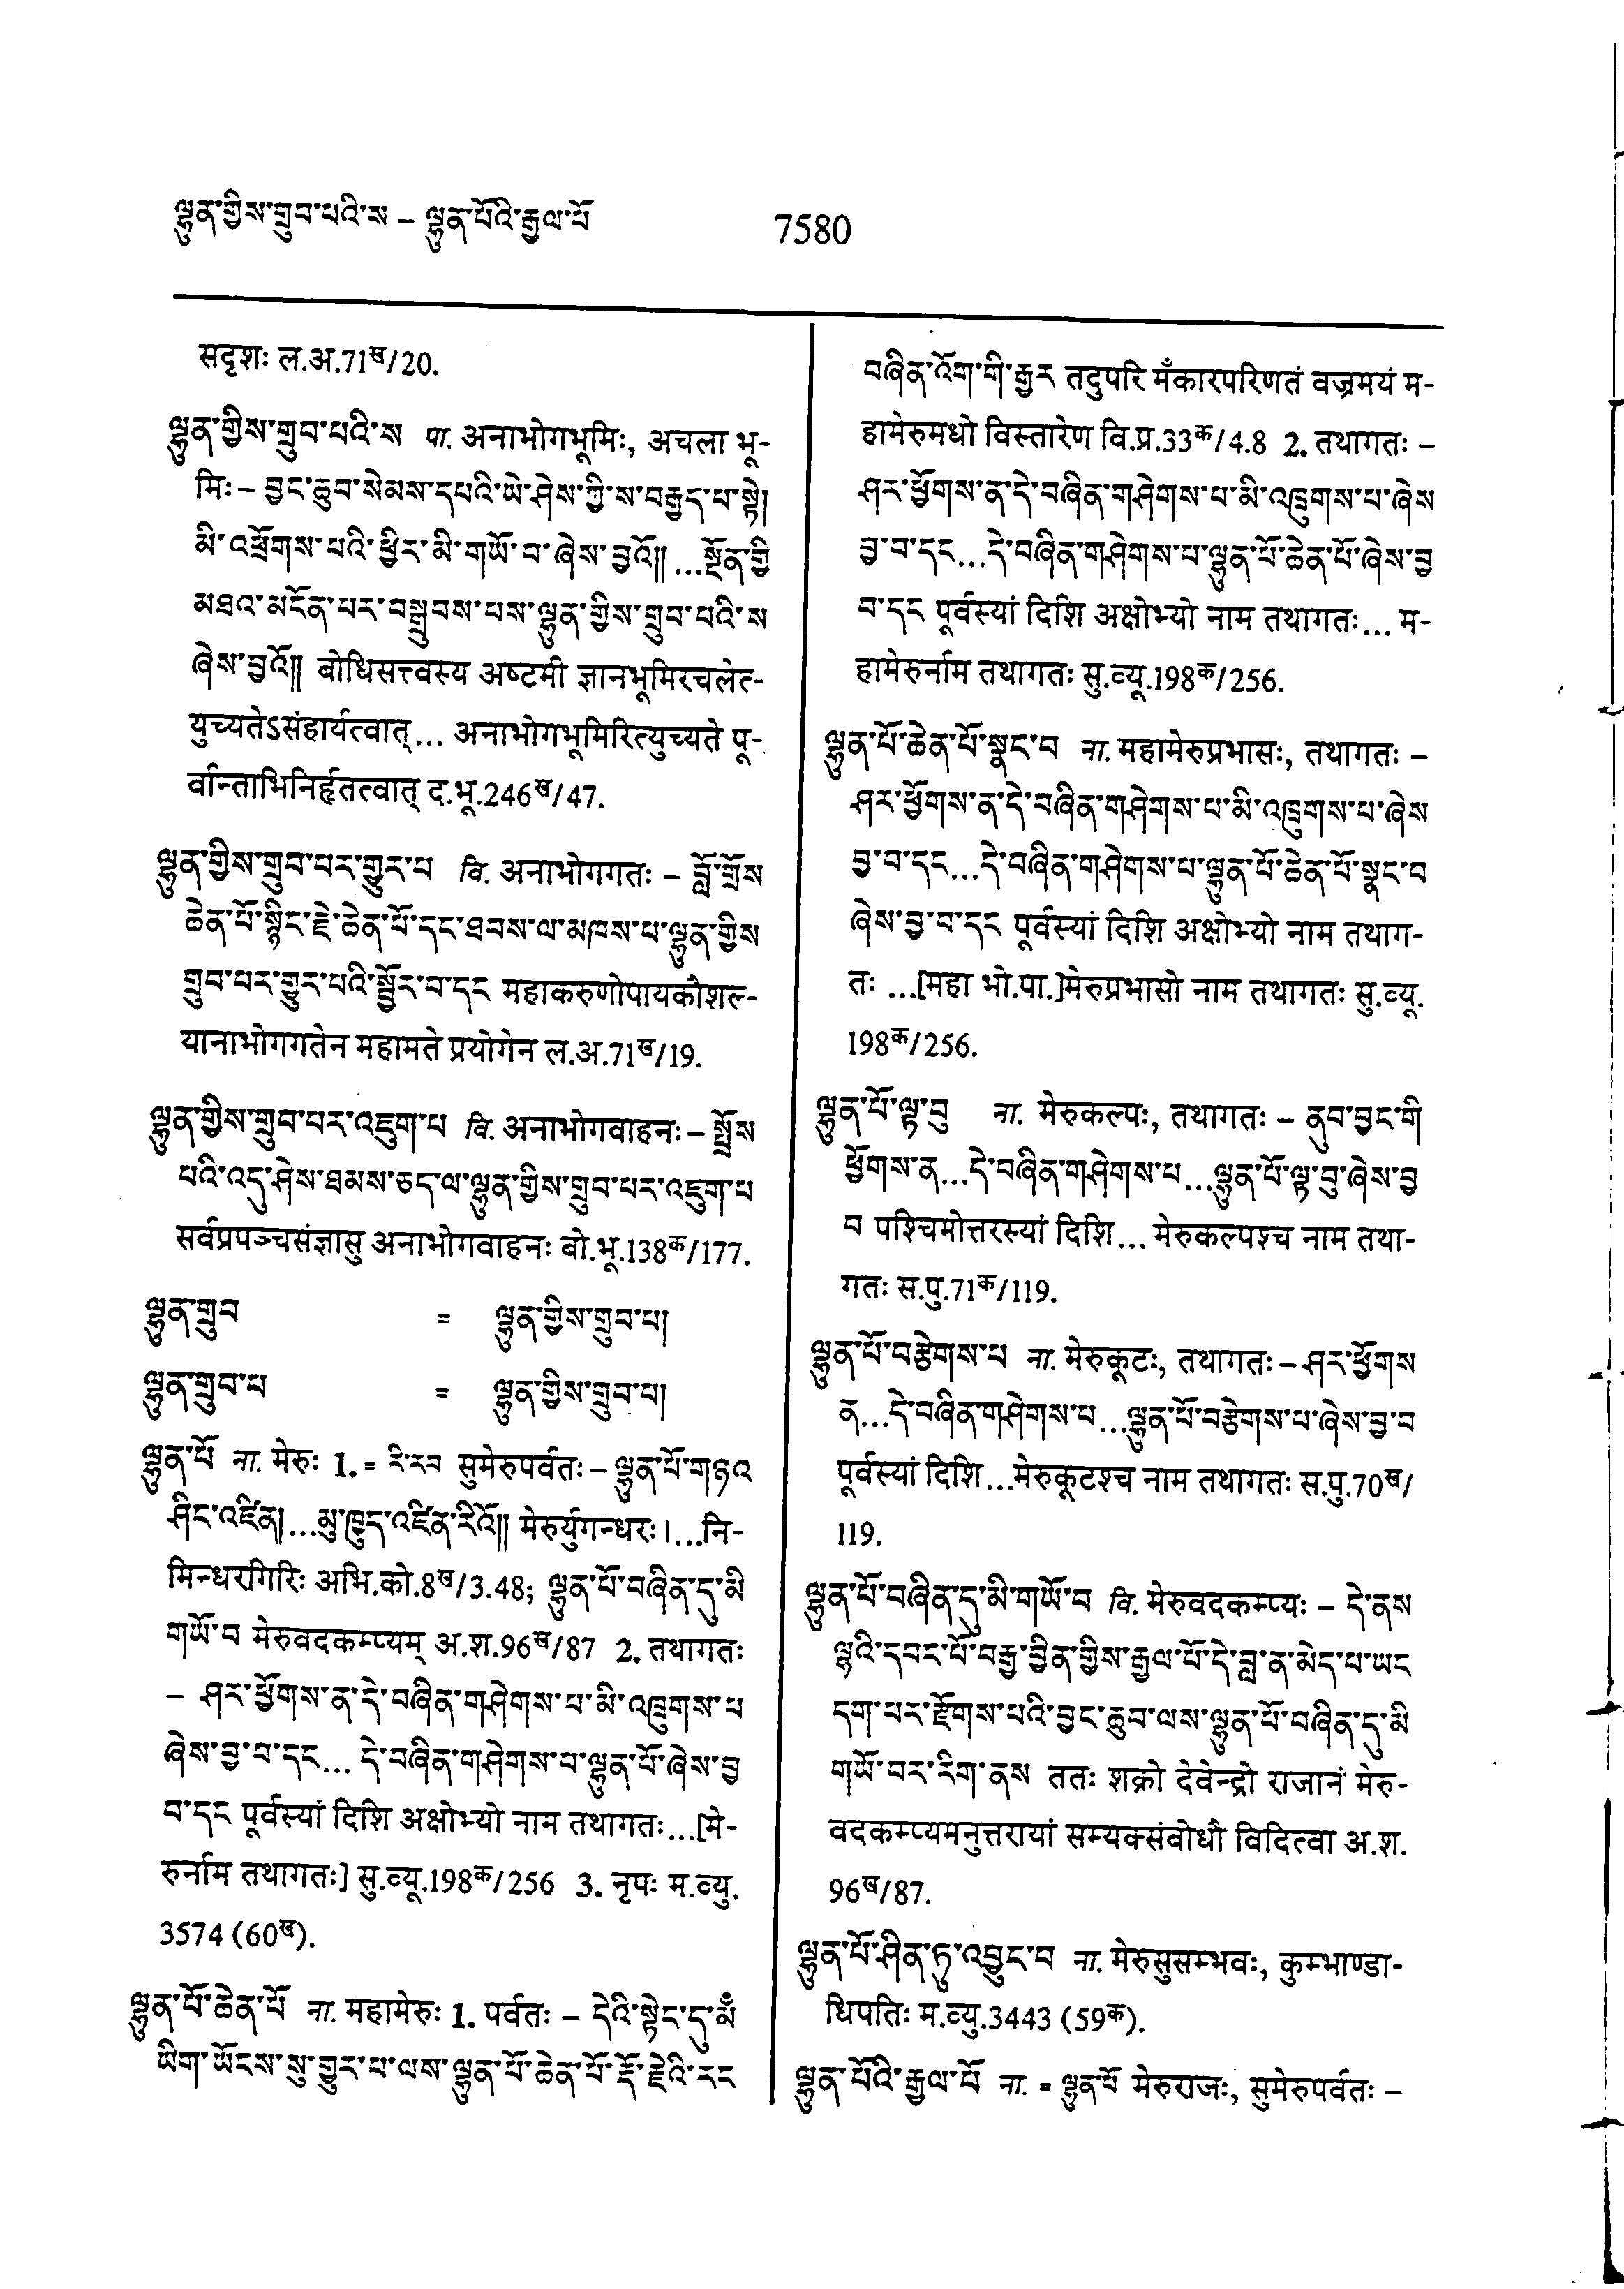 ལྷུན་གྱིས་གྲུབ་པའི་ས – ལྷུན་པོའི་རྒྱལ་པོ
7580
सदृशः ल.अ.71ख/20.
ལྷུན་གྱིས་གྲུབ་པའི་ས पा. अनाभोगभूमिः, अचला भू-
मिः – བྱང་ཆུབ་སེམས་དཔའི་ཡེ་ཤེས་ཀྱི་ས་བརྒྱད་པ་སྟེ།
མི་འཕྲོགས་པའི་ཕྱིར་མི་གཡོ་བ་ཞེས་བྱའོ།། ...སྔོན་གྱི
མཐའ་མངོན་པར་བསྒྲུབས་པས་ལྷུན་གྱིས་གྲུབ་པའི་ས
ཞེས་བྱའོ།། बोधिसत्त्वस्य अष्टमी ज्ञानभूमिरचलेत्-
युच्यतेऽसंहार्यत्वात्... अनाभोगभूमिरित्युच्यते पू-
र्वान्ताभिनिर्हृतत्वात् द.भू.246ख/47.
ལྷུན་གྱིས་གྲུབ་པར་གྱུར་པ वि. अनाभोगगतः – བློ་གྲོས
ཆེན་པོ་སྙིང་རྗེ་ཆེན་པོ་དང་ཐབས་ལ་མཁས་པ་ལྷུན་གྱིས
གྲུབ་པར་གྱུར་པའི་སྦྱོར་བ་དང महाकरुणोपायकौशल्-
यानाभोगगतेन महामते प्रयोगेन ल.अ.71ख/19.
ལྷུན་གྱིས་གྲུབ་པར་འཇུག་པ वि. अनाभोगवाहनः – སྤྲོས
པའི་འདུ་ཤེས་ཐམས་ཅད་ལ་ལྷུན་གྱིས་གྲུབ་པར་འཇུག་པ
सर्वप्रपञ्चसंज्ञासु अनाभोगवाहनः बो.भू.138क/177.
ལྷུན་གྲུབ = ལྷུན་གྱིས་གྲུབ་པ།
ལྷུན་གྲུབ་པ = ལྷུན་གྱིས་གྲུབ་པ།
ལྷུན་པོ ना. मेरुः 1. = རི་རབ सुमेरुपर्वतः – ལྷུན་པོ་གཉའ
ཤིང་འཛིན།...མུ་ཁྱུད་འཛིན་རིའོ།། मेरुर्युगन्धरः।...नि-
मिन्धरगिरिः अभि.को.8ख/3.48; ལྷུན་པོ་བཞིན་དུ་མི
གཡོ་བ मेरुवदकम्प्यम् अ.श.96ख/87 2. तथागतः
– ཤར་ཕྱོགས་ན་དེ་བཞིན་གཤེགས་པ་མི་འཁྲུགས་པ
ཞེས་བྱ་བ་དང... དེ་བཞིན་གཤེགས་པ་ལྷུན་པོ་ཞེས་བྱ
བ་དང पूर्वस्यां दिशि अक्षोभ्यो नाम तथागतः...[मे-
रुर्नाम तथागतः] सु.व्यू.198क/256 3. नृपः म.व्यु.
3574 (60ख).
ལྷུན་པོ་ཆེན་པོ ना. महामेरुः 1. पर्वतः – དེའི་སྟེང་དུ་མཾ
ཡིག་ཡོངས་སུ་གྱུར་པ་ལས་ལྷུན་པོ་ཆེན་པོ་རྡོ་རྗེའི་རང
བཞིན་འོག་གི་རྒྱར तदुपरि मँकारपरिणतं वज्रमयं म-
हामेरुमधो विस्तारेण वि.प्र.33क/4.8 2. तथागतः –
ཤར་ཕྱོགས་ན་དེ་བཞིན་གཤེགས་པ་མི་འཁྲུགས་པ་ཞེས
བྱ་བ་དང...དེ་བཞིན་གཤེགས་པ་ལྷུན་པོ་ཆེན་པོ་ཞེས་བྱ
བ་དང पूर्वस्यां दिशि अक्षोभ्यो नाम तथागतः... म-
हामेरुर्नाम तथागतः सु.व्यू.198क/256.
ལྷུན་པོ་ཆེན་པོ་སྣང་བ ना. महामेरुप्रभासः, तथागतः –
ཤར་ཕྱོགས་ན་དེ་བཞིན་གཤེགས་པ་མི་འཁྲུགས་པ་ཞེས
བྱ་བ་དང...དེ་བཞིན་གཤེགས་པ་ལྷུན་པོ་ཆེན་པོ་སྣང་བ
ཞེས་བྱ་བ་དང पूर्वस्यां दिशि अक्षोभ्यो नाम तथाग-
तः ...[महा भो.पा.]मेरुप्रभासो नाम तथागतः सु.व्यू.
198क/256.
ལྷུན་པོ་ལྟ་བུ ना. मेरुकल्पः, तथागतः – ནུབ་བྱང་གི
ཕྱོགས་ན...དེ་བཞིན་གཤེགས་པ...ལྷུན་པོ་ལྟ་བུ་ཞེས་བྱ
བ पश्चिमोत्तरस्यां दिशि... मेरुकल्पश्च नाम तथा-
गतः स.पु.71क/119.
ལྷུན་པོ་བརྩེགས་པ ना. मेरुकूटः, तथागतः – ཤར་ཕྱོགས
ན...དེ་བཞིན་གཤེགས་པ...ལྷུན་པོ་བརྩེགས་པ་ཞེས་བྱ་བ
पूर्वस्यां दिशि...मेरुकूटश्च नाम तथागतः स.पु.70ख/
119.
ལྷུན་པོ་བཞིན་དུ་མི་གཡོ་བ वि. मेरुवदकम्प्यः – དེ་ནས
ལྷའི་དབང་པོ་བརྒྱ་བྱིན་གྱིས་རྒྱལ་པོ་དེ་བླ་ན་མེད་པ་ཡང
དག་པར་རྫོགས་པའི་བྱང་ཆུབ་ལས་ལྷུན་པོ་བཞིན་དུ་མི
གཡོ་བར་རིག་ནས ततः शक्रो देवेन्द्रो राजानं मेरु-
वदकम्प्यमनुत्तरायां सम्यक्संबोधौ विदित्वा अ.श.
96ख/87.
ལྷུན་པོ་ཤིན་ཏུ་འབྱུང་བ ना. मेरुसुसम्भवः, कुम्भाण्डा-
धिपतिः म.व्यु.3443 (59क).
ལྷུན་པོའི་རྒྱལ་པོ ना. = ལྷུན་པོ मेरुराजः, सुमेरुपर्वतः –